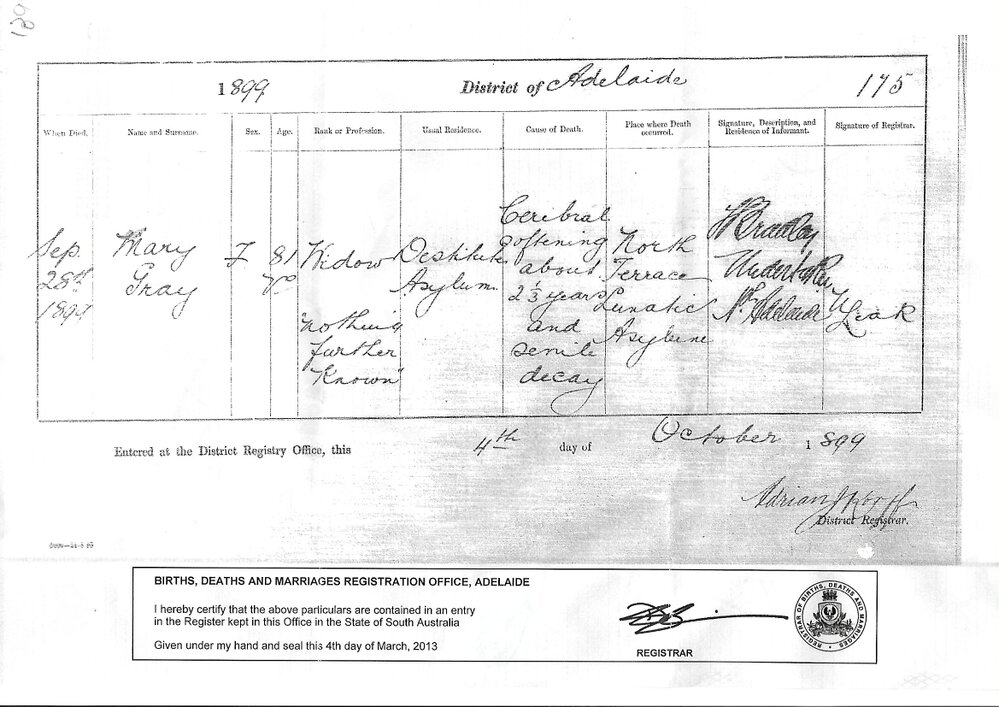 189
1899 District of Adelaide 175
When Died. Name and Surname. Sex. Age. Rank or Profession. Usual Residence. Cause of Death. Place where Death occurred. Signature, Description, and Residence of Informant. Signature of Registrar.
Sep.
28th
1899
Mary
Gray
F
81
Widow
"nothing
further
Known"
Destitute
Asylum
Ceribral
softening
about
2 1/3 years
and
senile
decay
North
Terrace
Lunatic
Asylum
Bradley
Undertaker
Nth Adelaide
Leak
Entered at the District Registry Office, this 4th day of October 1899
Adrian
District Registrar.
BIRTHS, DEATHS AND MARRIAGES REGISTRATION OFFICE, ADELAIDE
I hereby certify that the above particulars are contained in an entry
in the Register kept in this Office in the State of South Australia
Given under my hand and seal this 4th day of March, 2013
REGISTRAR
REGISTRAR OF BIRTHS, DEATHS AND MARRIAGES